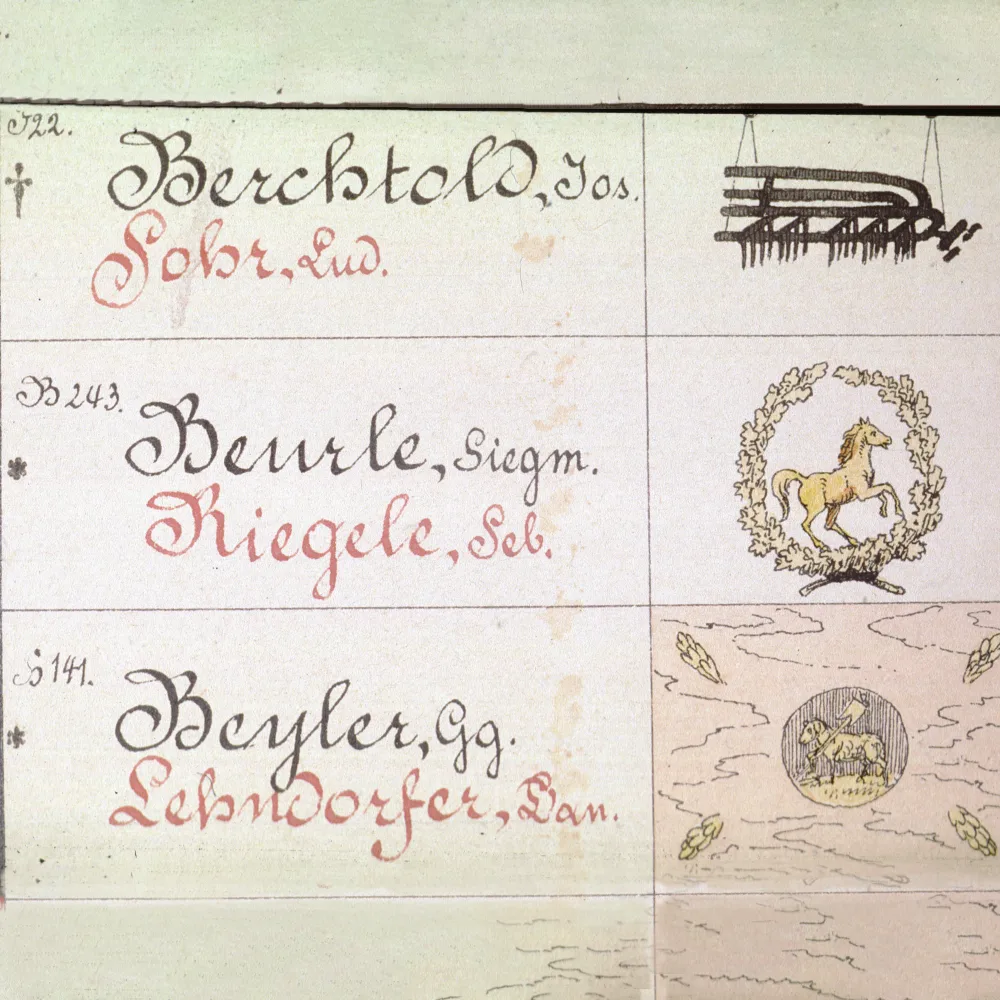 J22.
Berchtold, Jos.
Sohr, Lud.
B 243.
Beurle, Siegm.
Riegele, Seb.
S 141.
Beyler, Gg.
Lehndorfer, Dan.